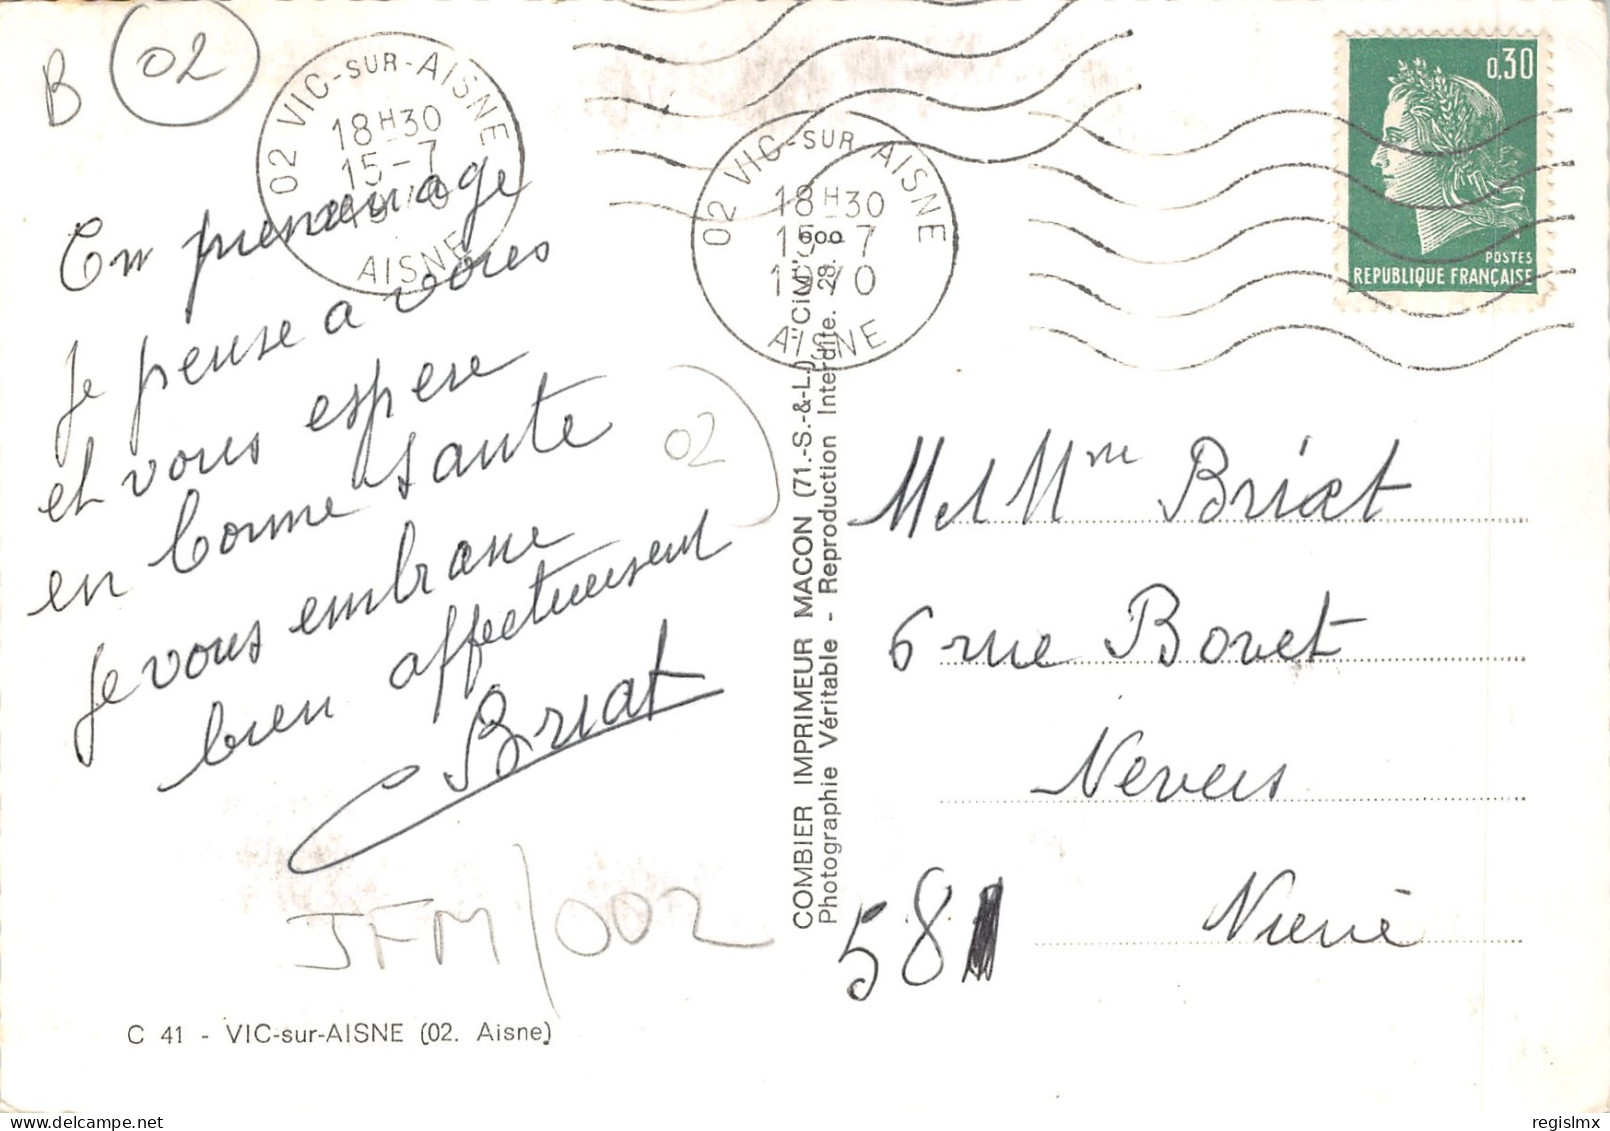 B 02
02 VIC-SUR-AISNE
18H30
15-7
AISNE
02 VIC-SUR-AISNE
18H30
15-7
1970
AISNE
0,30
POSTES
REPUBLIQUE FRANÇAISE
En
Je pense a vous
et vous espere
en bonne sante
Je vous embrasse
bien affectueusement
Briat
02
JFM/002
C 41 - VIC-sur-AISNE (02. Aisne)
COMBIER IMPRIMEUR MACON (71.-S.-&-L.) "CIM"
Photographie Véritable - Reproduction Interdite. 28. 600
M et Mme Briat
6 rue Bovet
Nevers
58
Nievre
regislmx
delcampe.net